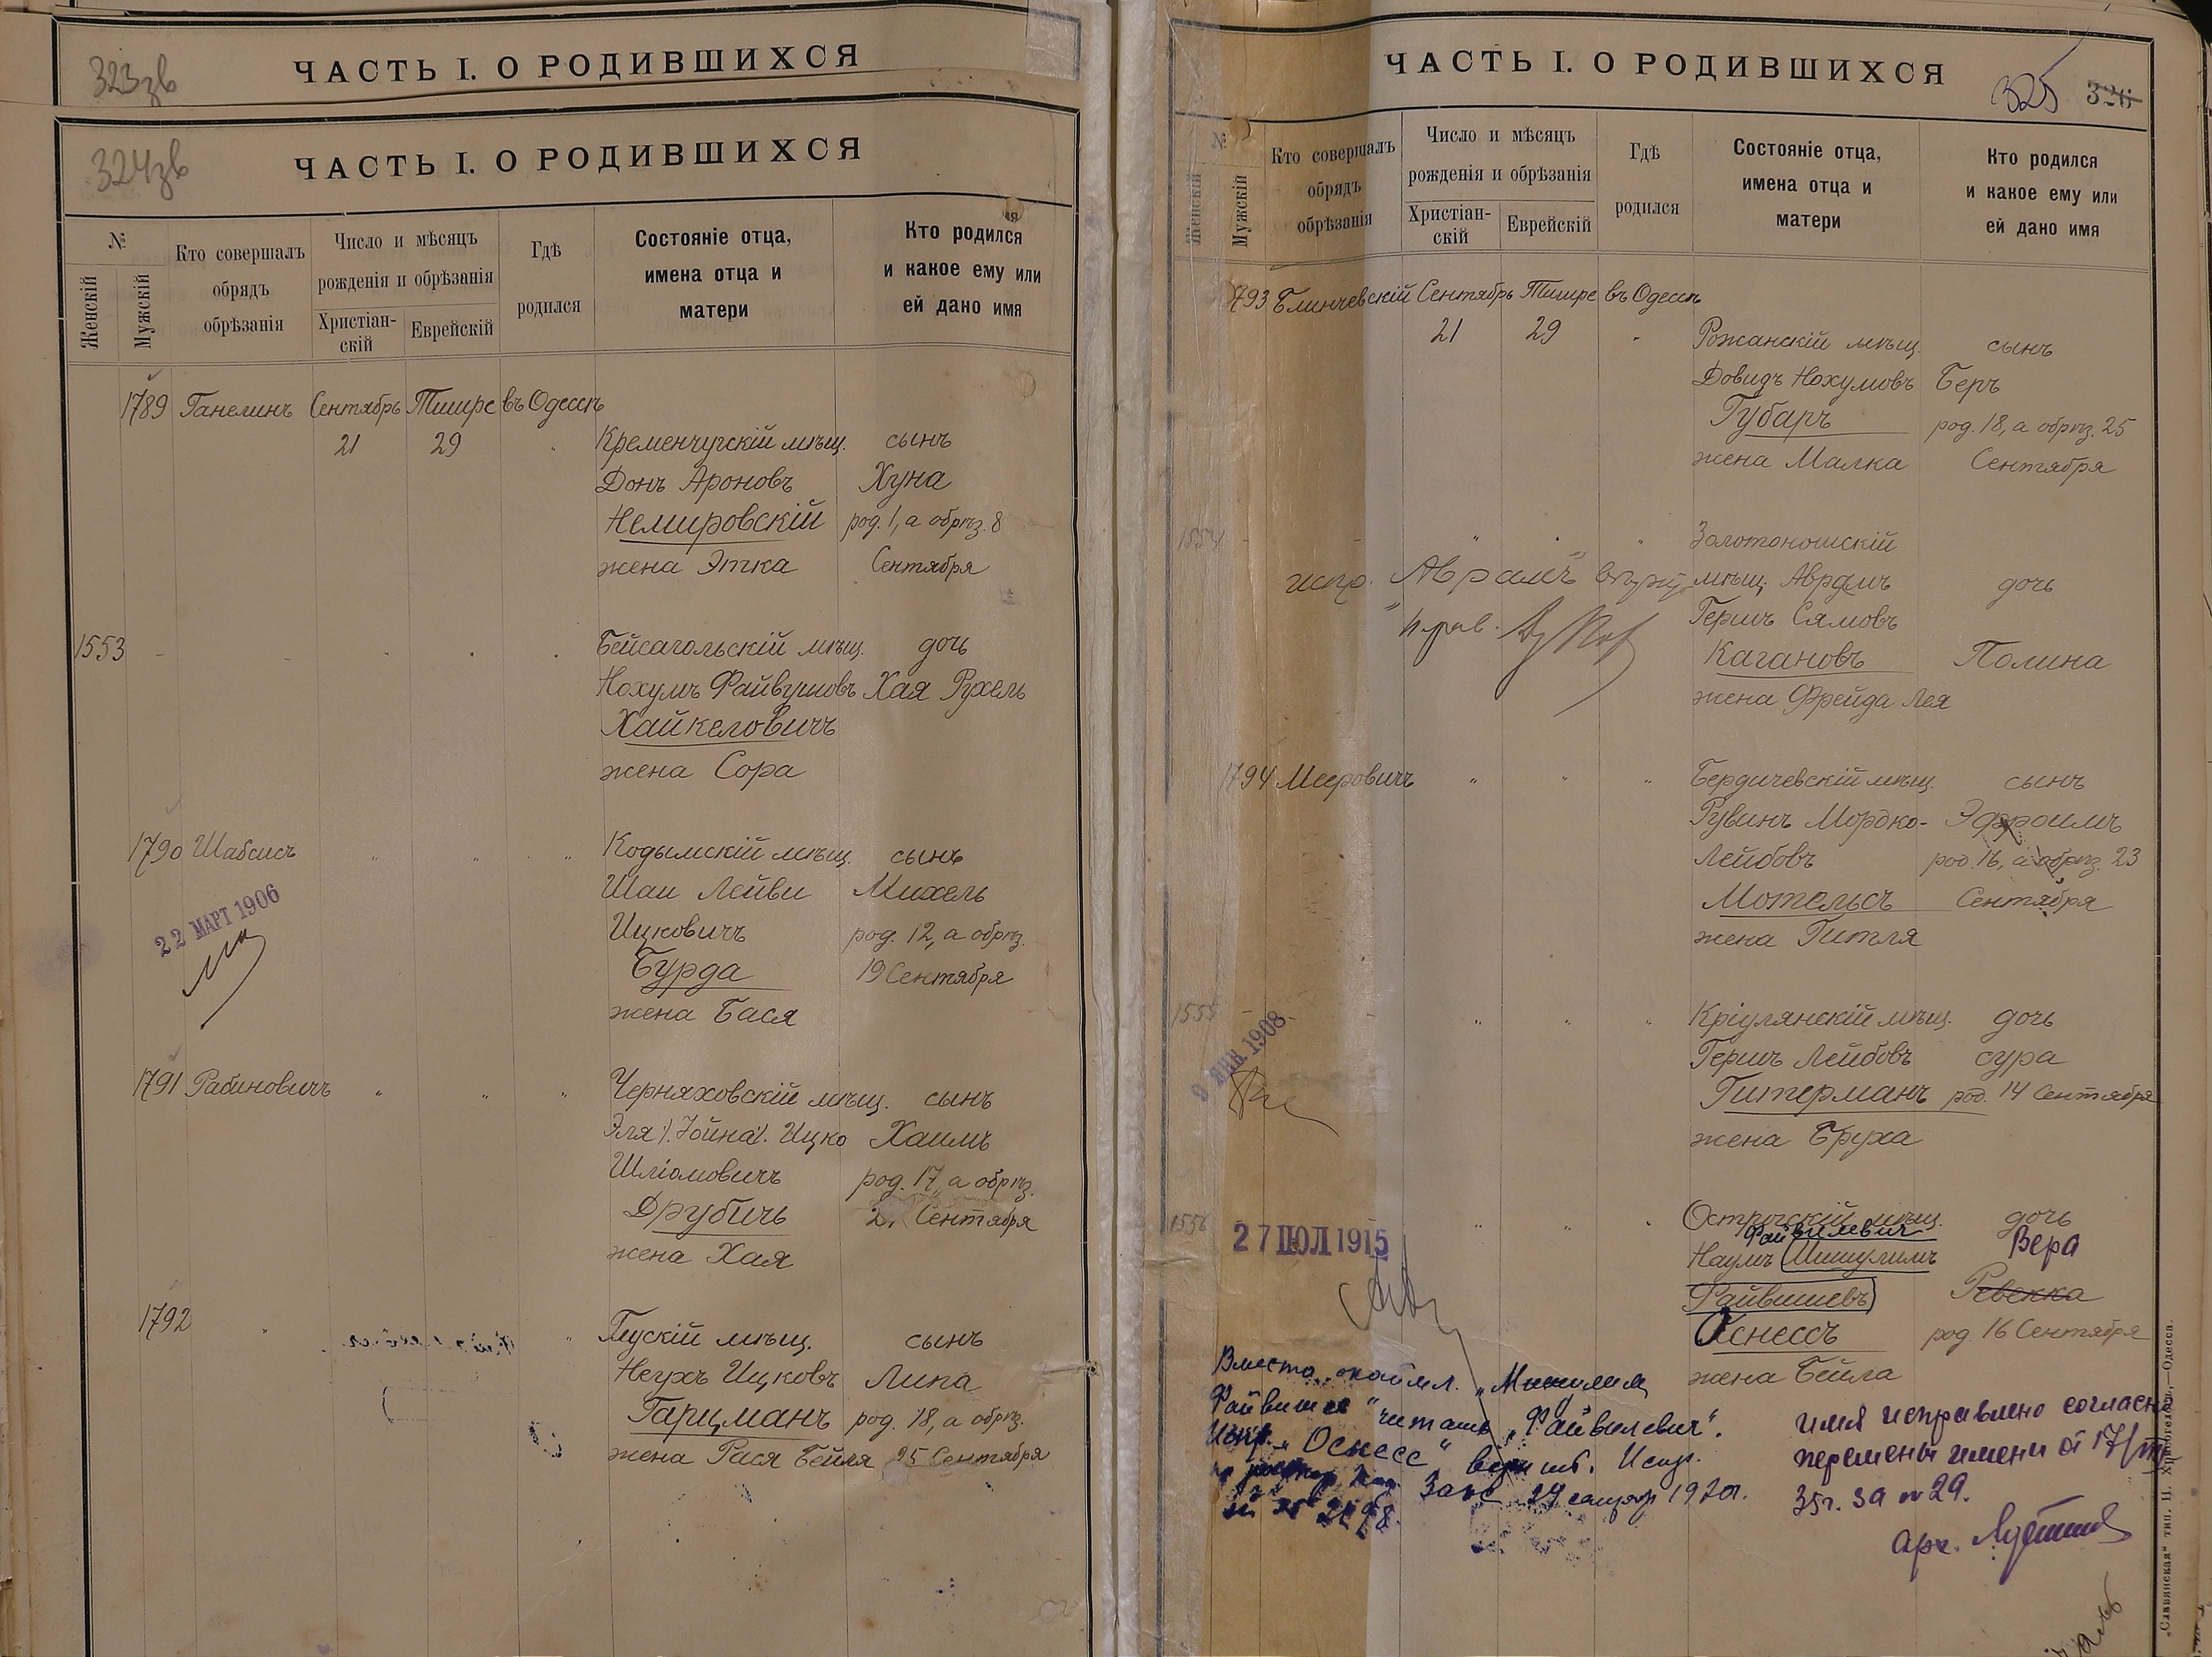 323зв
ЧАСТЬ I. О РОДИВШИХСЯ
324зв
ЧАСТЬ I. О РОДИВШИХСЯ
№
Женскій
Мужскій
Кто совершалъ
обрядъ
обрѣзанія
Число и мѣсяцъ
рожденія и обрѣзанія
Христіан-
скій
Еврейскій
Гдѣ
родился
Состояніе отца,
имена отца и
матери
Кто родился
и какое ему или
ей дано имя
1789 Ганелинъ Сентябрь Тишре въ Одессѣ
21 29 Кременчугскій мѣщ. сынъ
Донъ Ароновъ Хуна
Немировскій род. 1, а обрѣз. 8
жена Этка Сентября
1553 Бейсагольскій мѣщ. дочь
Нохумъ Файвушовъ Хая Рухель
Хайкеловичъ
жена Сора
1790 Шабсисъ " " " Кодымскій мѣщ. сынъ
Шаи Лейви Михель
22 МАРТ 1906
Ицковичъ род. 12, а обрѣз.
Бурда 19 Сентября
жена Бася
1791 Рабиновичъ " " " Черняховскій мѣщ. сынъ
Эля /.Іойна/. Ицко Хаимъ
Шліомовичъ род. 17, а обрѣз.
Друбичъ Сентября
жена Хая
1792 " " Глускій мѣщ. сынъ
Неухъ Ицковъ Липа
Гарцманъ род. 18, а обрѣз.
жена Рася Бейля 25 Сентября
ЧАСТЬ I. О РОДИВШИХСЯ
325 326
№
Женскій
Мужскій
Кто совершалъ
обрядъ
обрѣзанія
Число и мѣсяцъ
рожденія и обрѣзанія
Христіан-
скій
Еврейскій
Гдѣ
родился
Состояніе отца,
имена отца и
матери
Кто родился
и какое ему или
ей дано имя
1793 Блинчевскій Сентябрь Тишре въ Одессѣ
21 29 Рожанскій мѣщ. сынъ
Довидъ Нохумовъ Беръ
Губаръ род. 18, а обрѣз. 25
жена Малка Сентября
1554 " " " Золотоношскій
испр. Аврамъ мѣщ. Аврамъ дочь
Гершъ Сямовъ
Кагановъ Полина
жена Фрейда Лея
1794 Мееровичъ " " " Бердичевскій мѣщ. сынъ
Рувинъ Мордко- Эфроимъ
Лейбовъ род. 16, а обрѣз. 23
Мотельсъ Сентября
жена Гитля
1555 " " " Кріулянскій мѣщ. дочь
ЯНВ. 1908
Гершъ Лейбовъ сура
Гитерманъ род. 14 Сентября
жена Бруха
1556 27 ІЮЛ 1915 " " Острогскій мѣщ. дочь
Файвилевич Вера
Наумъ Шишулимъ
Файвишевъ Ревекка
Оснессъ род. 16 Сентября
жена Бейла
Вместо
Файвишев" читать „Файвилевич".
Испр. „Оснесс" Испр.
29 1920г.
имя исправлено согласно
перемены имени от 17/
35г. за № 29.
Арх.
„Славянская" тип. Н. Хрисогелосъ,—Одесса.